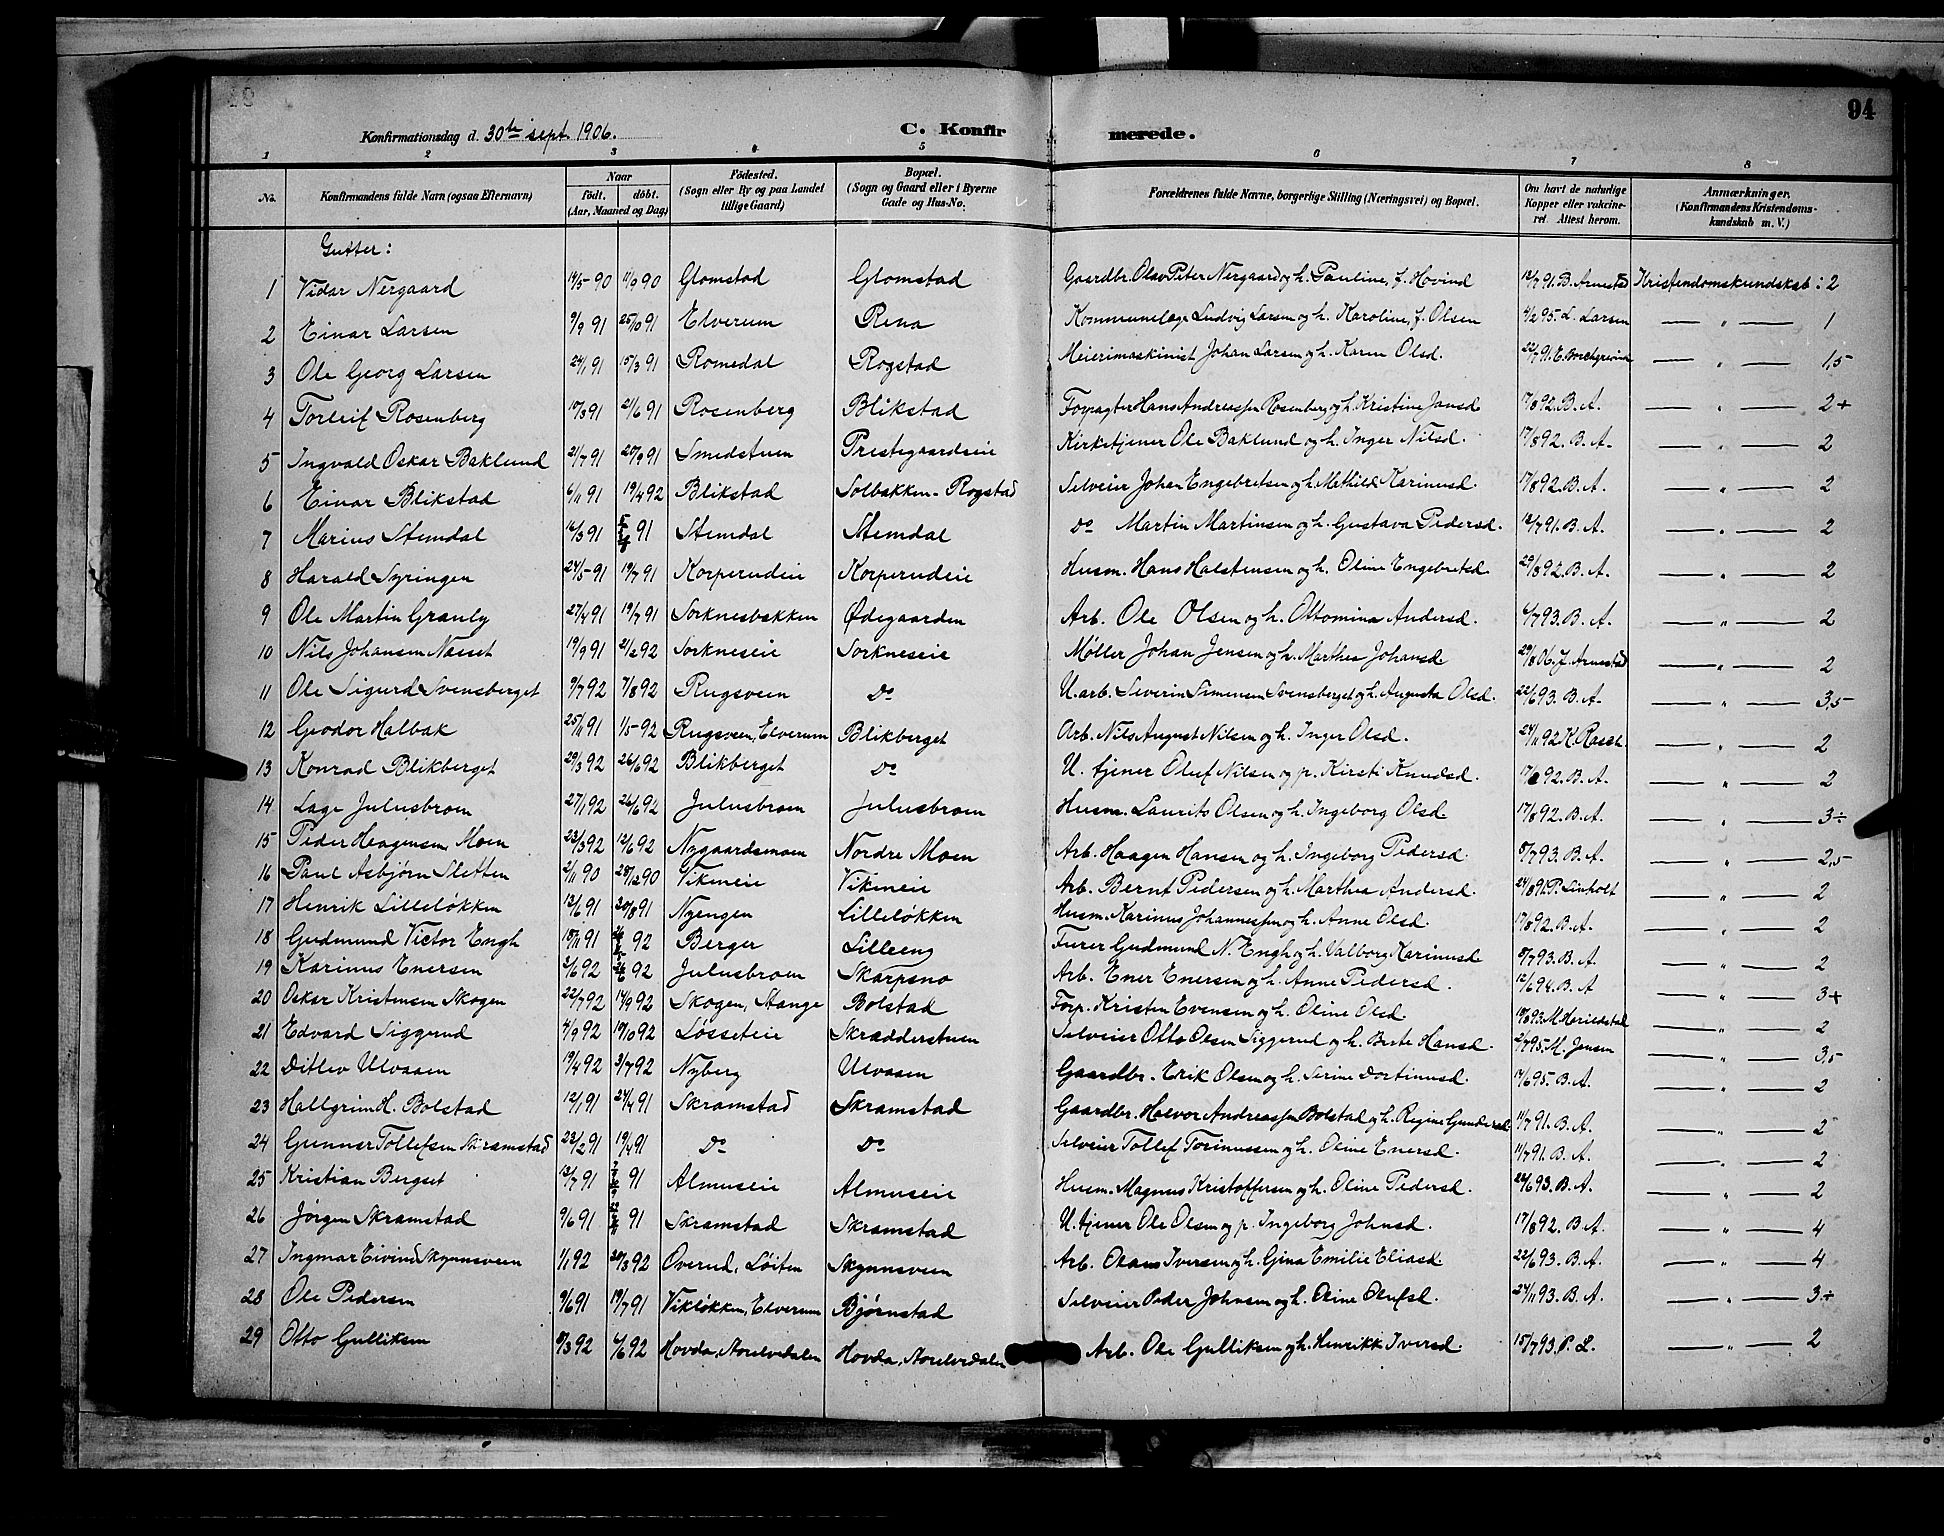 94
Konfirmationsdag d. 30te sept. 1906.
C. Konfirmerede.
1 2 3 4 5 6 7 8
No. Konfirmandens fulde Navn (ogsaa Efternavn) Naar født. døbt. (Aar, Maaned og Dag) Fødested. (Sogn eller By og paa Landet tillige Gaard) Bopæl. (Sogn og Gaard eller i Byerne Gade og Hus-No. Forældrenes fulde Navne, borgerlige Stilling (Næringsvei) og Bopæl. Om havt de naturlige Kopper eller vakcineret. Attest herom. Anmærkninger. (Konfirmandens Kristendomskundskab m. V.)
Gutter:
1 Vidar Nergaard 14/5 90 11/9 90 Glomstad Glomstad Gaardbr. Olav Peter Nergaard og h. Pauline, f. Hovind 12/7 91. B. Arnestad Kristendomskundskab: 2
2 Einar Larsen 9/9 91 25/10 91 Elverum Rena Kommunelæge Ludvig Larsen og h. Karoline, f. Olsen 4/2 95. L. Larsen — " — 1
3 Ole Georg Larsen 24/1 91 15/3 91 Romedal Rogstad Meierimaskinist Johan Larsen og h. Karen Olsd. 22/7 91. E. Borchgrevink — " — 1,5
4 Torleif Rosenberg 10/3 91 21/6 91 Rosenberg Blikstad Forpagter Hans Andreassen Rosenberg og h. Kristine Jansd. 17/8 92. B. A. — " — 2+
5 Ingvald Oskar Baklund 21/7 91 27/9 91 Smedstuen Prestegaardseie Kirketjener Ole Baklund og h. Inger Nilsd. 17/8 92. B. A. — " — 2
6 Einar Blikstad 6/11 91 19/4 92 Blikstad Solbakken - Rogstad Selveier Johan Engebretsen og h. Mathild Karinusd. 17/8 92. B. A. — " — 2
7 Marius Stemdal 16/3 91 91 Stemdal Stemdal Do Martin Martinsen og h. Gustava Pedersd. 12/7 91. B. A. — " — 2
8 Harald Syringen 24/5 91 19/7 91 Korperudeie Korperudeie Husm. Hans Halstensen og h. Oline Engebretsd. 29/8 92. B. A. — " — 2
9 Ole Martin Granly 27/4 91 19/7 91 Sorknesbakken Ødegaarden Arb. Ole Olsen og h. Ottomina Andersd. 6/7 93. B. A. — " — 2
10 Nils Johansen Næsset 19/9 91 21/2 92 Sorkneseie Sorkneseie Møller Johan Jensen og h. Marthea Johansd 29/8 06. J. Arnestad — " — 2
11 Ole Sigurd Svensberget 9/7 92 7/8 92 Rugsveen Do U. arb. Severin Simensen Svensberget og h. Augusta Olsd. 22/6 93. B. A. — " — 3,5
12 Geodor Halbak 25/11 91 1/5 92 Rugsveen, Elverum Blikberget Arb. Nils August Nilsen og h. Inger Olsd. 24/11 92 K. Rasch. — " — 2
13 Konrad Blikberget 29/3 92 26/6 92 Blikberget Do U. tjener Oluf Nilsen og p. Kirsti Knudsd. 17/8 92. B. A. — " — 2
14 Lage Julusbroen 27/1 92 26/6 92 Julusbroen Julusbroen Husm. Laurits Olsen og h. Ingeborg Olsd. 17/8 92. B. A. — " — 3÷
15 Peder Haagensen Moen 23/3 92 12/6 92 Nygaardsmoen Nordre Moen Arb. Haagen Hansen og h. Ingeborg Pedersd. 8/7 93. B. A. — " — 2,5
16 Paul Asbjørn Sletten 2/11 90 28/12 90 Vikeneie Vikeneie Arb. Bernt Pedersen og h. Marthea Andersd. 24/8 91. P. Lindholt — " — 2
17 Henrik Lilleløkken 13/6 91 30/8 91 Nyengen Lilleløkken Husm. Karinus Johannessen og h. Anne Olsd. 17/8 92. B. A. — " — 2
18 Gudmund Victor Engh 18/11 91 92 Berger Lilleeng Furer Gudmund N. Engh og h. Valborg Karinusd 8/7 93. B. A. — " — 2
19 Karinus Enersen 2/6 92 26/6 92 Julusbroen Skarpsno Arb. Ener Enersen og h. Anne Pedersd. 12/6 94. B. A — " — 3+
20 Oskar Kristensen Skogen 22/7 92 17/9 92 Skogen, Stange Bolstad Forp. Kristen Evensen og h. Oline Olsd. — " — 2
21 Edvard Siggerud 4/9 92 19/10 92 Løsseteie Skrædderstuen Selveier Otto Olsen Siggerud og h. Berte Hansd. 2/7 95. M. Jensen — " — 3,5
22 Ditlev Ulvaaen 19/4 92 3/7 92 Nyberg Ulvaaen Gaardbr. Erik Olsen og h. Serine Dortinusd. 14/6 95. B. A. — " — 2
23 Hallgrim H. Bolstad 12/1 91 27/4 91 Skramstad Skramstad Gaardbr. Halvor Andreassen Bolstad og h. Regine Gundersd. 11/7 91. B. A. — " — 2
24 Gunnar Tollefsen Skramstad 23/2 91 19/4 91 Do Do Selveier Tollef Torinussen og h. Oline Enersd. 11/7 91. B. A. — " — 2
25 Kristian Berget 13/7 91 91 Almuseie Almuseie Husm. Magnus Kristoffersen og h. Oline Pedersd. 26/6 93. B. A. — " — 2
26 Jørgen Skramstad 9/6 91 91 Skramstad Skramstad U. tjener Ole Olsen og p. Ingeborg Johnsd. 17/8 92. B. A. — " — 4
27 Ingmar Eivind Skynnsveen 1/1 92 20/3 92 Overud, Løiten Skynnsveen Arb. Olaus Iversen og h. Gina Emilie Eliasd. 22/6 93. B. A. — " — 4
28 Ole Pedersen 9/6 91 19/7 91 Vikløkken, Elverum Bjørnstad Selveier Peder Johnsen og h. Oline Olufsd. 24/11 93. B. A. — " — 3÷
29 Otto Gulliksen 8/3 92 6/6 92 Hovda, Aorelvedalen Hovda, Aorelvdalen Arb. Ole Gulliksen og h. Henrikk Iversd. 15/7 93. P. L. — " — 2